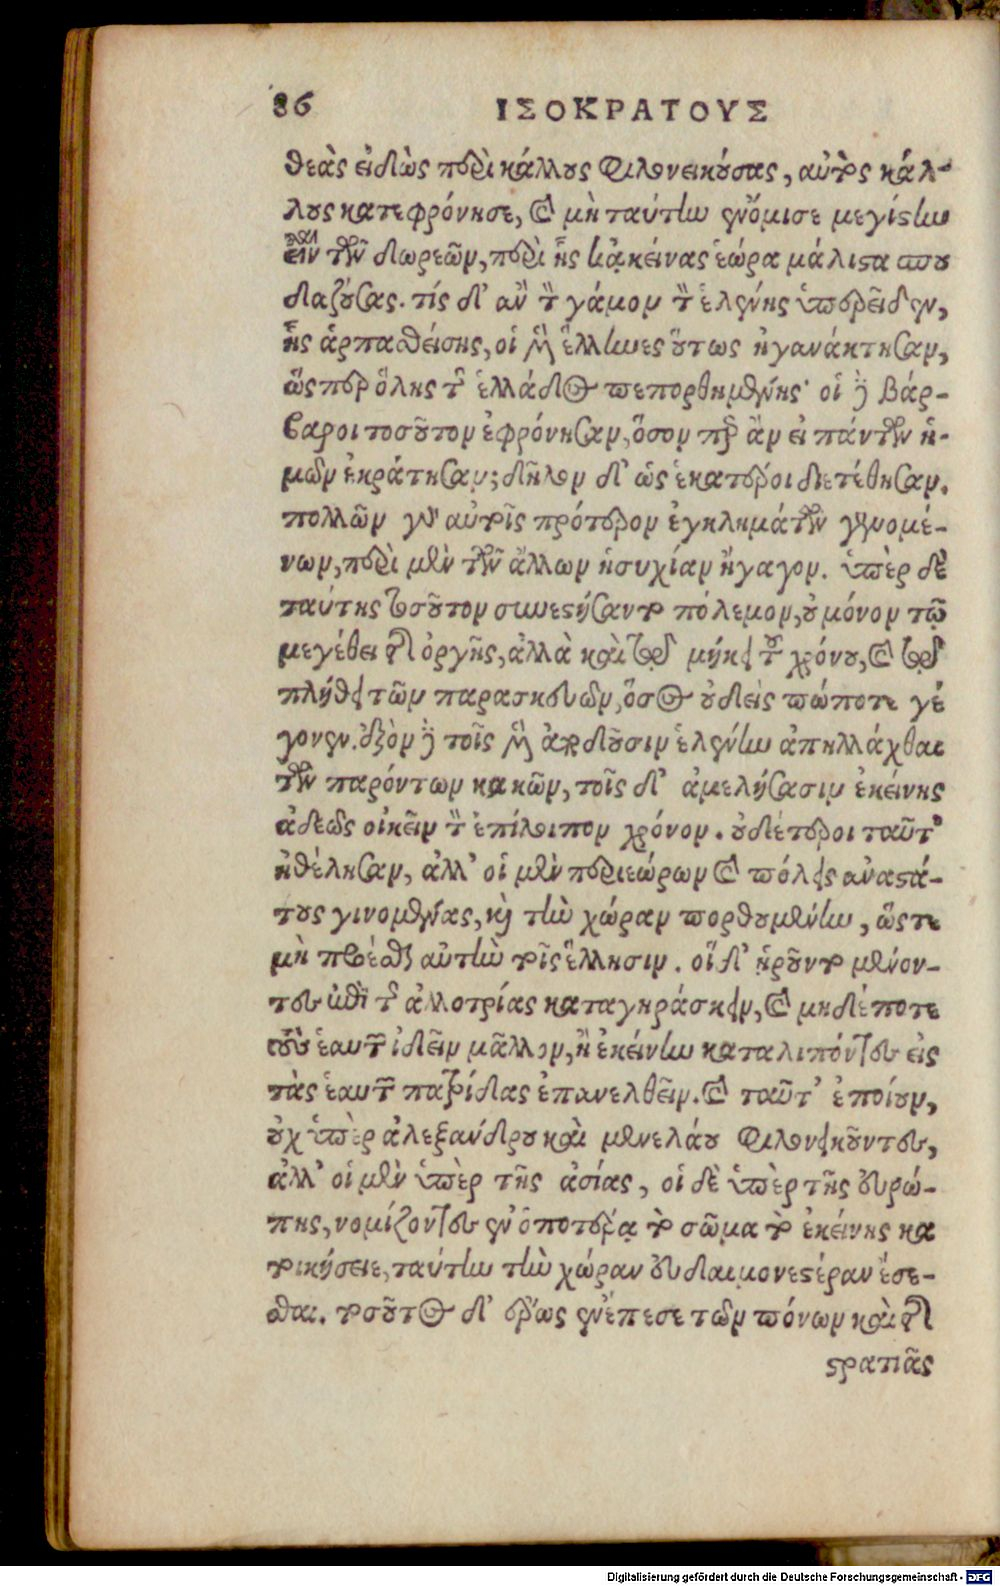 86 ΙΣΟΚΡΑΤΟΥΣ
θεὰς εἰδὼς περὶ κάλλους φιλονεικούσας, αὐτὸς κάλ-
λους κατεφρόνησε, καὶ μὴ ταύτην ἐνόμισε μεγίστην
εἶναι τῶν δωρεῶν, περὶ ἧς κἀκείνας ἑώρα μάλιστα σπου
δαζούσας. τίς δ' ἂν τὸν γάμον τὸν ἑλένης ὑπερεῖδεν,
ἧς ἁρπασθείσης, οἱ μὲν ἕλληνες οὕτως ἠγανάκτησαν,
ὥσπερ ὅλης τῆς ἑλλάδος πεπορθημένης· οἱ δὲ βάρ-
βαροι τοσοῦτον ἐφρόνησαν, ὅσον περ ἂν εἰ πάντων ἡ-
μῶν ἐκράτησαν; δῆλον δ' ὡς ἑκάτεροι διετέθησαν.
πολλῶν γὰρ αὐτοῖς πρότερον ἐγκλημάτων γενομέ-
νων, περὶ μὲν τῶν ἄλλων ἡσυχίαν ἤγαγον. ὑπὲρ δὲ
ταύτης τοσοῦτον συνεστήσαντο πόλεμον, οὐ μόνον τῷ
μεγέθει τῆς ὀργῆς, ἀλλὰ καὶ τῷ μήκει τοῦ χρόνου, καὶ τῷ
πλήθει τῶν παρασκευῶν, ὅσος οὐδεὶς πώποτε γέ
γονεν. ἐξὸν δὲ τοῖς μὲν ἀποδοῦσιν ἑλένην ἀπηλλάχθαι
τῶν παρόντων κακῶν, τοῖς δ' ἀμελήσασιν ἐκείνης
ἀδεῶς οἰκεῖν τὸν ἐπίλοιπον χρόνον. οὐδέτεροι ταῦτ'
ἠθέλησαν, ἀλλ' οἱ μὲν περιεώρων καὶ πόλεις ἀναστά-
τους γινομένας, καὶ τὴν χώραν πορθουμένην, ὥστε
μὴ προέσθαι αὐτὴν τοῖς ἕλλησιν. οἱ δ' ᾑροῦντο μένον-
τες ἐπὶ τῆς ἀλλοτρίας καταγηράσκειν, καὶ μηδέποτε
τοὺς ἑαυτῶν ἰδεῖν μᾶλλον, ἢ ἐκείνην καταλιπόντες εἰς
τὰς ἑαυτῶν πατρίδας ἐπανελθεῖν. καὶ ταῦτ' ἐποίουν,
οὐχ ὑπὲρ ἀλεξάνδρου καὶ μενελάου φιλονεικοῦντες,
ἀλλ' οἱ μὲν ὑπὲρ τῆς ἀσίας, οἱ δὲ ὑπὲρ τῆς εὐρώ-
πης, νομίζοντες ἐν ὁποτέρᾳ τὸ σῶμα τὸ ἐκείνης κα
τοικήσειε, ταύτην τὴν χώραν εὐδαιμονεστέραν ἔσε-
σθαι. τοσοῦτος δ' ἔρως ἐνέπεσε τῶν πόνων καὶ τῆς
στρατιᾶς
Digitalisierung gefördert durch die Deutsche Forschungsgemeinschaft - DFG